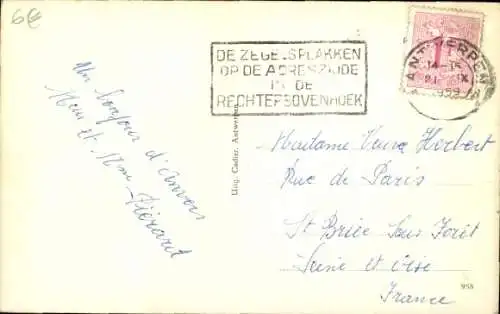 6€
DE ZEGELS PLAKKEN
OP DE ADRESZIJDE
IN DE
RECHTERBOVENHOEK
ANTWERPEN
14-15
21 IX
1959
1
Un bonjour d'Anvers
Mr et Mme Piérard
Uitg. Cadier, Antwerpen
Madame Veuve Herbert
Rue de Paris
St Brice Sous Forêt
Seine et Oise
France
958